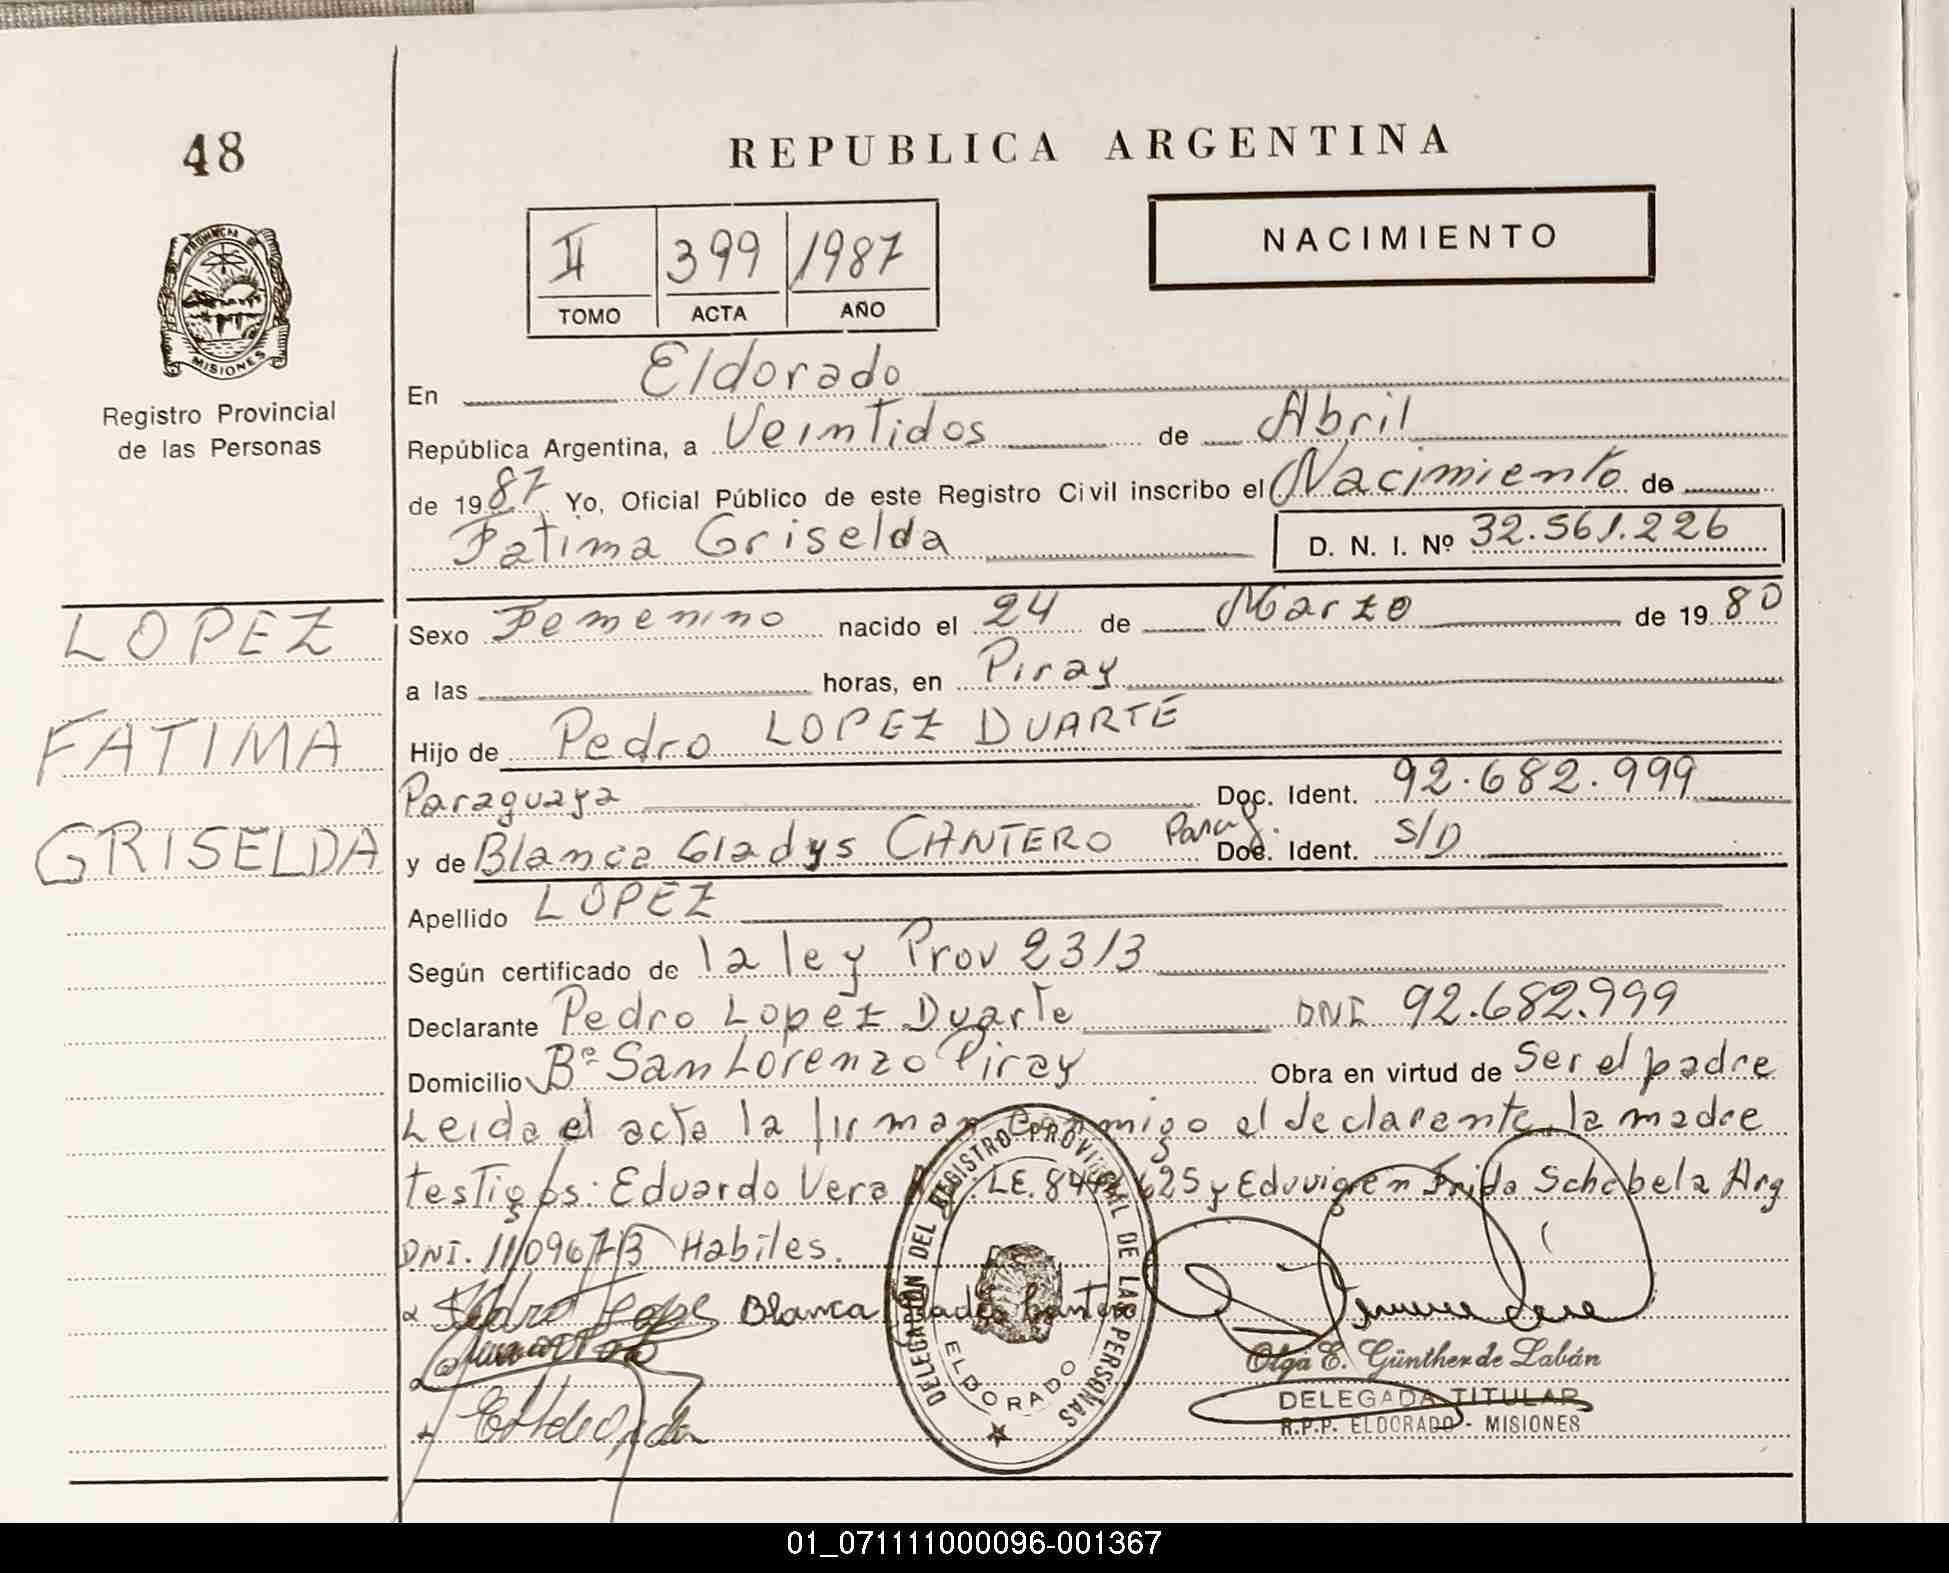 48
REPUBLICA ARGENTINA
NACIMIENTO
II 399 1987
TOMO ACTA AÑO
PROVINCIA DE
MISIONES
Registro Provincial
de las Personas
LOPEZ
FATIMA
GRISELDA
En Eldorado
República Argentina, a Veintidos de Abril
de 1987 Yo, Oficial Público de este Registro Civil inscribo el Nacimiento de
Fatima Griselda D. N. I. Nº 32.561.226
Sexo Femenino nacido el 24 de Marzo de 1980
a las horas, en Piray
Hijo de Pedro LOPEZ DUARTE
Paraguaya Doc. Ident. 92.682.999
y de Blanca Gladys CANTERO Parag. Doc. Ident. S/D
Apellido LOPEZ
Según certificado de la ley Prov 2313
Declarante Pedro Lopez Duarte DNI 92.682.999
Domicilio Bº San Lorenzo Piray Obra en virtud de Ser el padre
Leida el acta la firman conmigo el declarante, la madre
testigos: Eduardo Vera LE. y Eduvigen Frida Schabela Arg
DNI. Habiles.
Pedro Lopez Blanca Gladis Cantero
DELEGACION DEL REGISTRO PROVINCIAL DE LAS PERSONAS
ELDORADO
Olga E. Günther de Labán
DELEGADA TITULAR
R.P.P. ELDORADO - MISIONES
01_071111000096-001367